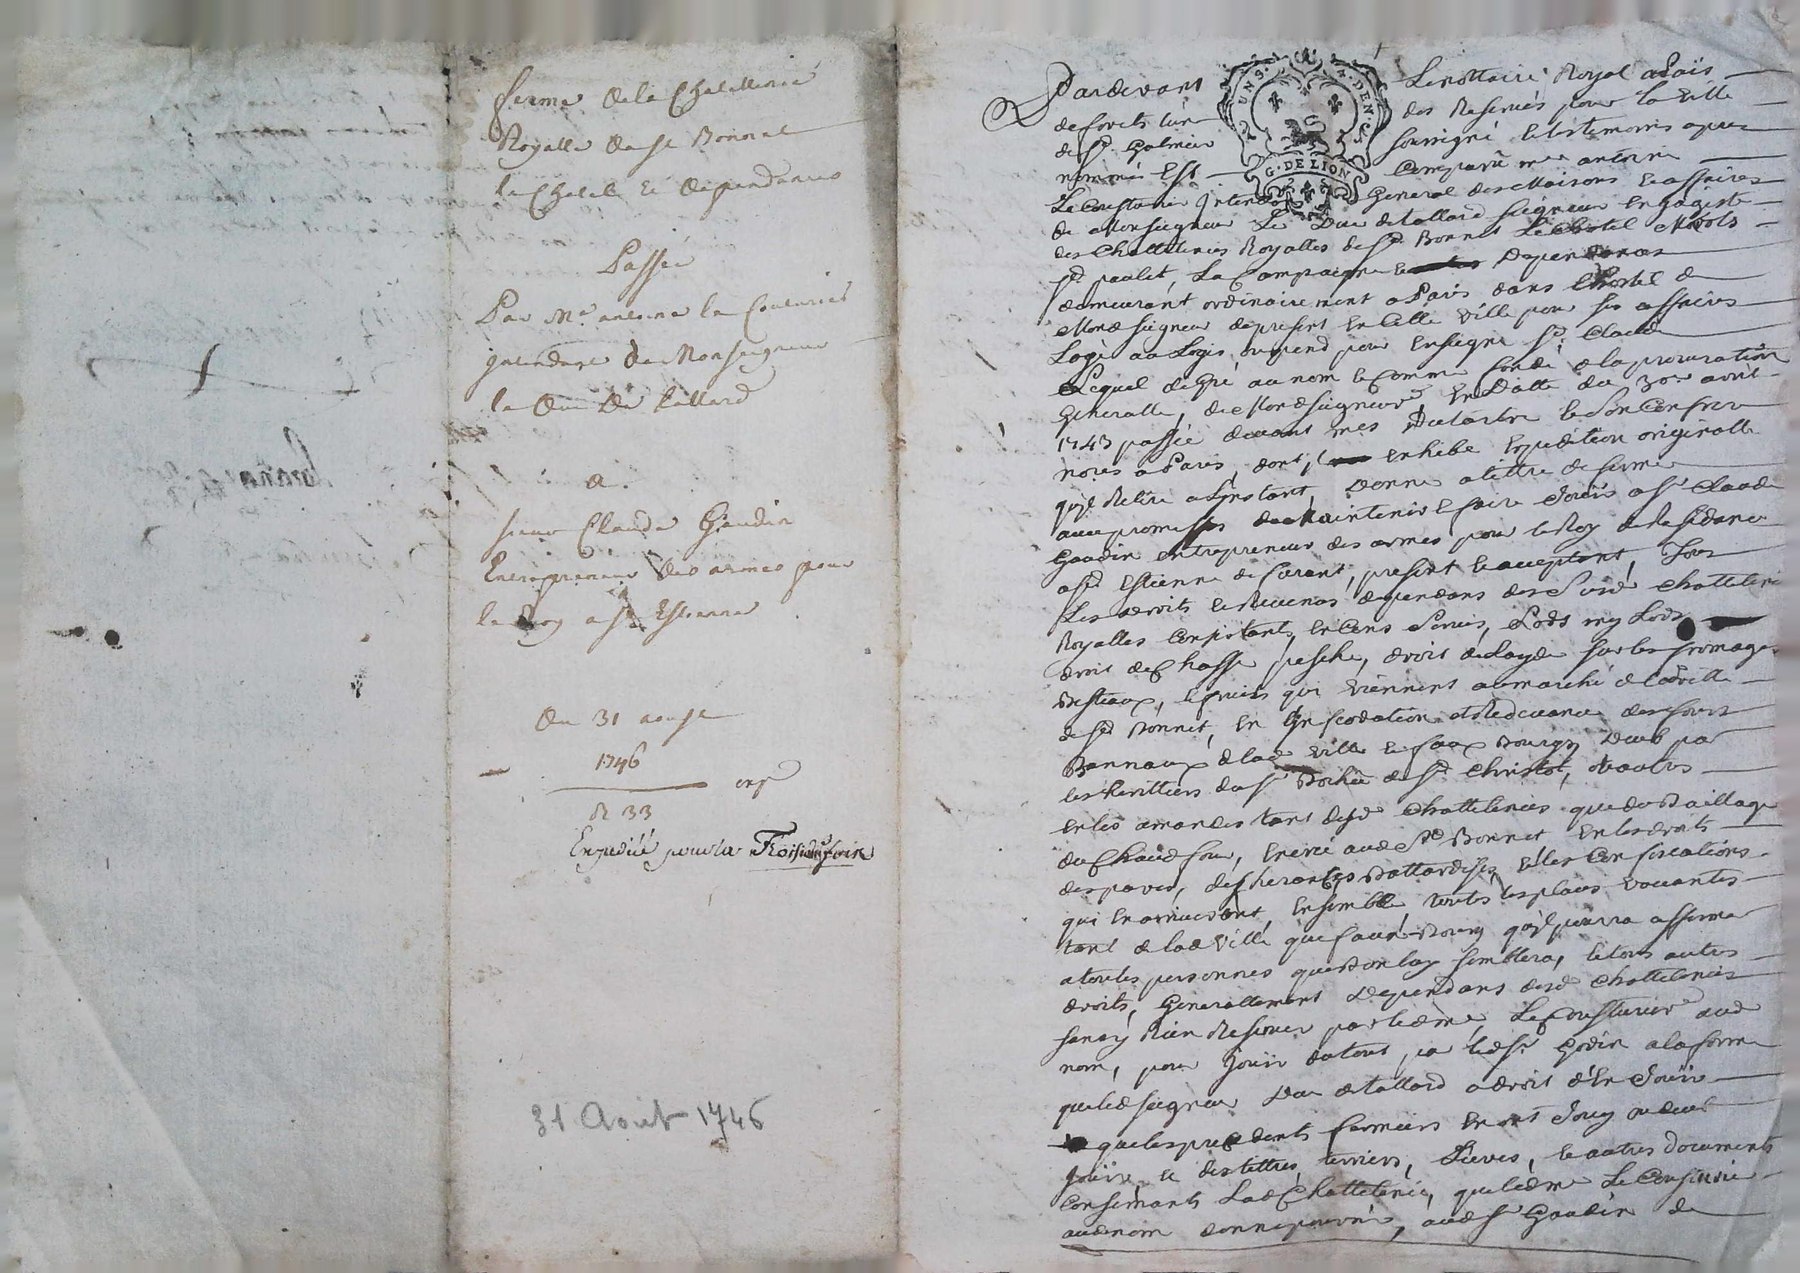 ferme de la Chatellenie
Royalle de St Bonnet
le Chatel et dependances
Passée
Par Me antoine le Couturier
intendant de Monseigneur
le Duc De Tallard
a
sieur Claude Gaudin
Entrepreneur des armes pour
le Roy a St Estienne
du 31 aoust
1746
R 33
Expedié pour la Troisieme fois
31 Août 1746
UN S. 4 DEN.
G. DE LION
Pardevant Le nottaire Royal au Païs
de forets des Reservés pour la ville
de St Galmier soussigné et les temoins apres
nommés Est Comparu me antoine
Le Cousturier Intendant General des Maisons et affaires
de Monseigneur Le Duc de tallard seigneur Engagiste
des Chattelenies Royalles de St Bonnet Le Chatel Marols
St paulet, La Campagne et Dependances
demeurant ordinairement a Paris dans L'hotel de
Mond seigneur de present en Cette ville pour ses affaires
Logé au Logis ou pend pour Enseigne St Claude
Lequel de Gré au nom et Comme fondé de la procuration
Generalle, de Mond seigneur En Datte du 30e avril
1743 passée devant mes Dutartre et son Confrere
nores a Paris, dont il exhibe Expedition originalle
qu'il Retire a L'instant, Donne a tittre de ferme
avec promesses de Maintenir et faire Jouir a sr Claude
Gaudin entrepreneur des armes pour le Roy de Residance
a St Estienne de furant, present et acceptant, Tous
Les droits et Revenus dependans desd Chattelenies
Royalles Consistant, en Cens Servis, Lods my Lods
droit de Chasse pesche, droit de Layde sur les fromages
Bestiaux, et fruits qui viennent au marché de lad ville
de St Bonnet, en Infeodation et Redevance des fours
Bannaux de lad ville et faux Bourgs Deub par
les heritiers du sr de St Christot, et autres
en les amandes tant desd Chattelenies que du Baillage
de Chaud four, en les droits
despaves, desherances Battardises, et les Confiscations
qui En arriveront, Ensemble toutes les places vacantes
tant de lad ville que faux-Bourg qu'il pourra affermer
a toutes personnes que Bon luy semblera, et tous autres
droits, Generallement Dependans desd Chattelenies
sans y Rien Reserver par led me Le Cousturier aud
nom, pour Jouir du tout, par led sr Godin a la forme
que led seigneur Duc de tallard a droit d'en Jouir
que les precedents fermiers En ont Jouy ou deub
Jouir et des tittres, terriers, Lieves, et autres documents
Consernants Lad Chattelenie, que led me Le Cousturier
aud nom donne pouvoir, aud sr Gaudin de